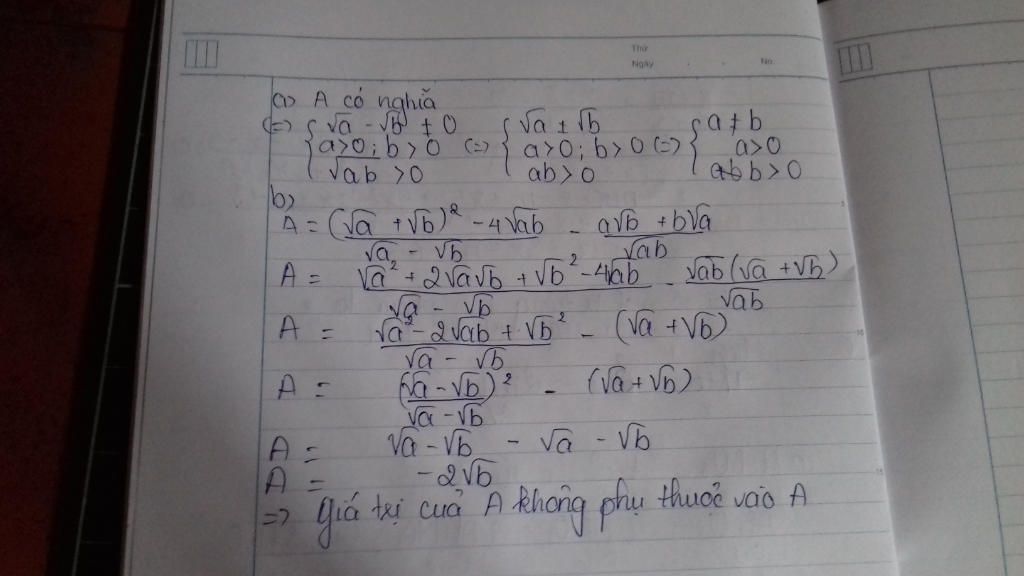 Thứ
Ngày . . No.
a> A có nghĩa
<=> { √a - √b ≠ 0 { √a ≠ √b { a ≠ b
a>0; b>0 <=> a>0; b>0 <=> a>0
√ab >0 ab>0 b>0
b>
A = (√a + √b)² - 4√ab / √a - √b - a√b + b√a / √ab
A = √a² + 2√a√b + √b² - 4√ab / √a - √b - √ab(√a + √b) / √ab
A = √a² - 2√ab + √b² / √a - √b - (√a + √b)
A = (√a - √b)² / √a - √b - (√a + √b)
A = √a - √b - √a - √b
A = -2√b
=> giá trị của A không phụ thuộc vào A